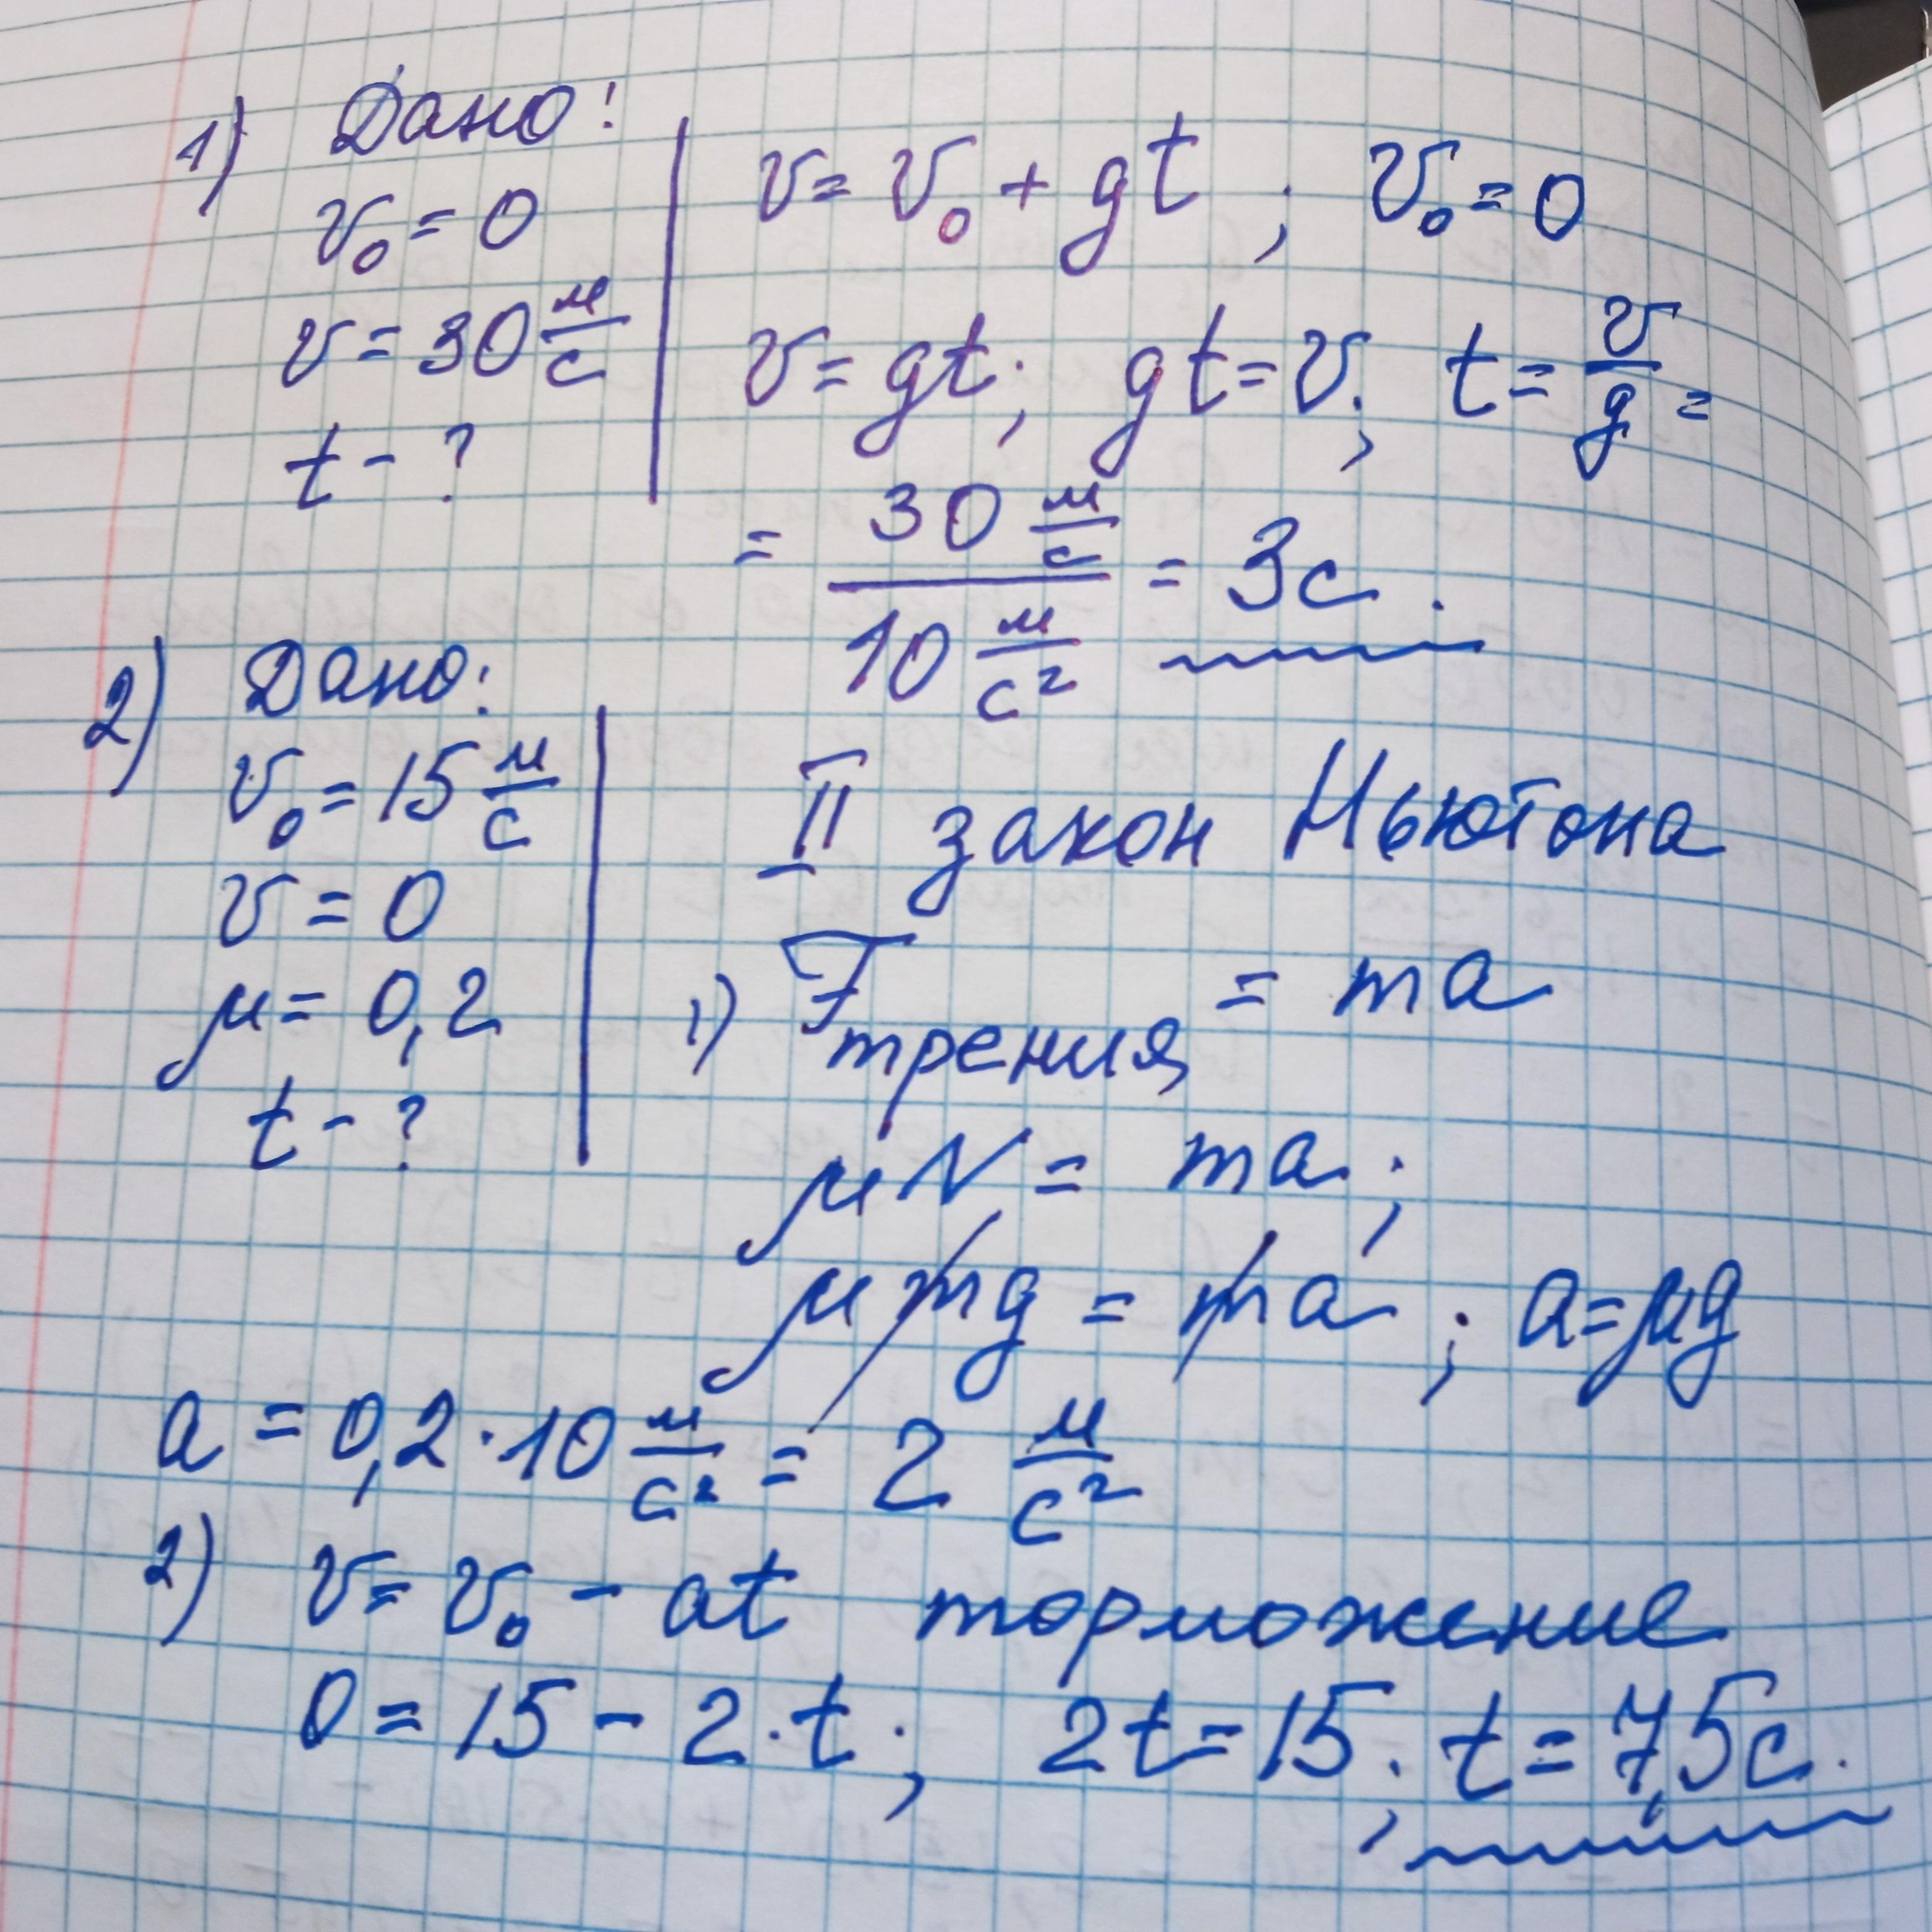 1) Дано:
v₀ = 0
v = 30 м/с
t - ?
v = v₀ + gt ; v₀ = 0
v = gt; gt = v; t = v/g =
= 30 м/с / 10 м/с² = 3с.
2) Дано:
v₀ = 15 м/с
v = 0
μ = 0,2
t - ?
II закон Ньютона
1) Fтрения = ma
μN = ma;
μmg = ma ; a = μg
a = 0,2 · 10 м/с² = 2 м/с²
2) v = v₀ - at торможение
0 = 15 - 2 · t; 2t = 15; t = 7,5с.